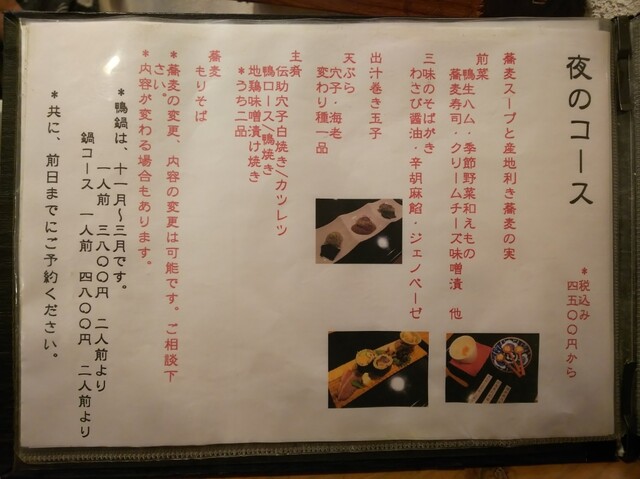 夜のコース
*税込み
四五〇〇円から
蕎麦スープと産地利き蕎麦の実
前菜
鴨生ハム・季節野菜和えもの
蕎麦寿司・クリームチーズ味噌漬　他
三味のそばがき
わさび醤油・辛胡麻餡・ジェノベーゼ
出汁巻き玉子
天ぷら
穴子・海老
変わり種一品
主肴
伝助穴子白焼き/カツレツ
鴨ロース/鴨焼き
地鶏味噌漬け焼き
*うち二品
蕎麦
もりそば
*蕎麦の変更、内容の変更は可能です。ご相談下
さい。
*内容が変わる場合もあります。
*鴨鍋は、十一月〜三月です。
一人前　三八〇〇円　二人前より
鍋コース　一人前　四八〇〇円　二人前より
*共に、前日までにご予約ください。